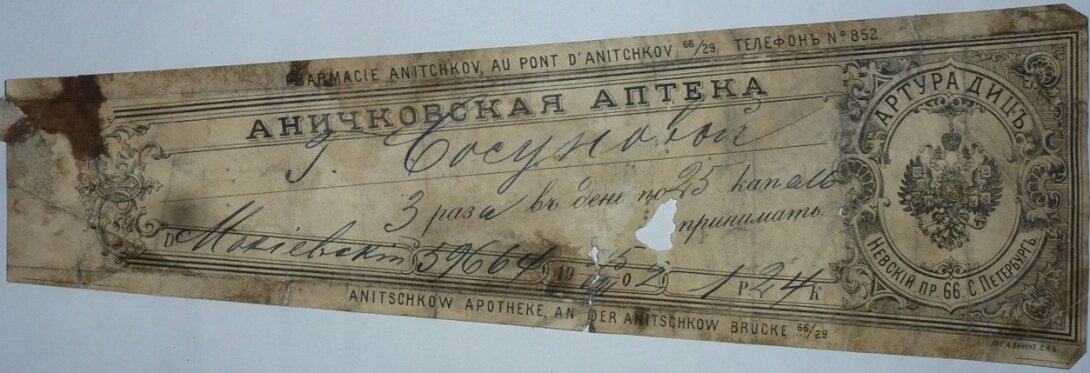 PHARMACIE ANITCHKOV, AU PONT D'ANITCHKOV 66/29. ТЕЛЕФОНЪ № 852.
АНИЧКОВСКАЯ АПТЕКА
АРТУРА ДИЦЪ
г. Сосуновой
3 раза въ день по 25 капель
принимать.
Dr Мокіевскій 59664 19 5/VII 02 1 Р. 24 К.
НЕВСКІЙ ПР. 66. С ПЕТЕРБУРГЪ.
ANITSCHKOW APOTHEKE, AN DER ANITSCHKOW BRÜCKE 66/29.
ЛИТ. А. ВИНЕКЕ, С.П.Б.